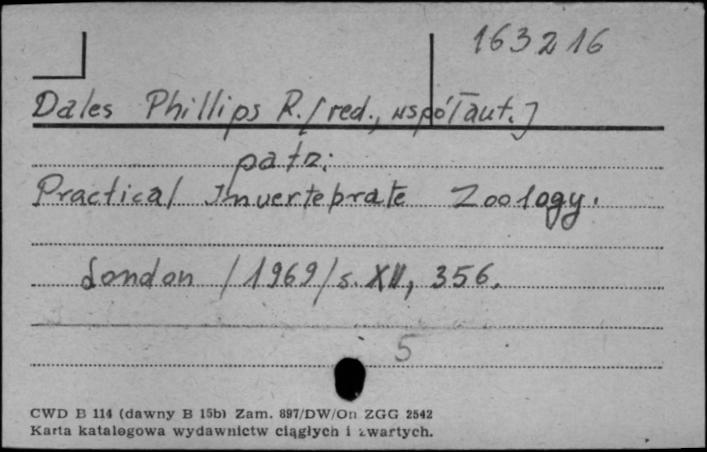 163216
Dales Phillips R. [red., współaut.]
patz:
Practical Invertebrate Zoology.
London /1969/ s. XII, 356.
5
CWD B 114 (dawny B 15b) Zam. 897/DW/On ZGG 2542
Karta katalogowa wydawnictw ciągłych i zwartych.